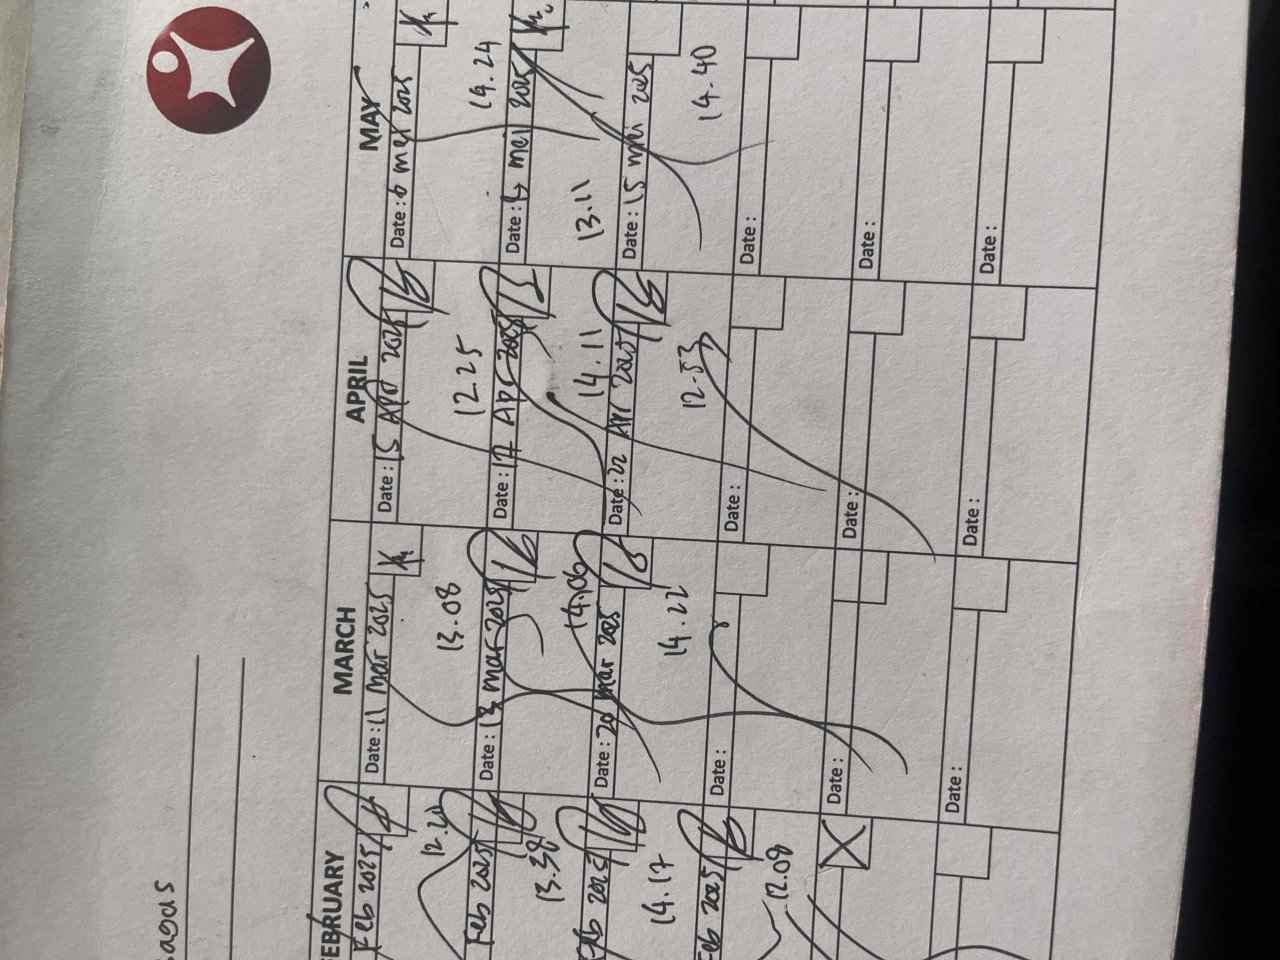 bagus
FEBRUARY
MARCH
APRIL
MAY
Feb 2025
Date : 11 Mar 2025
Date : 15 Apr 2025
Date : 6 mei 2025
12.20
13.08
12.25
14.24
Feb 2025
Date : 13 mar 2025
Date : 17 Apr 2025
Date : mei 2025
13.38
14.06
14.11
13.11
Feb 2025
Date : 20 mar 2025
Date : 22 Apr 2025
Date : 15 mei 2025
14.17
14.22
12.53
14.40
Feb 2025
Date :
Date :
Date :
12.08
Date :
Date :
Date :
Date :
Date :
Date :